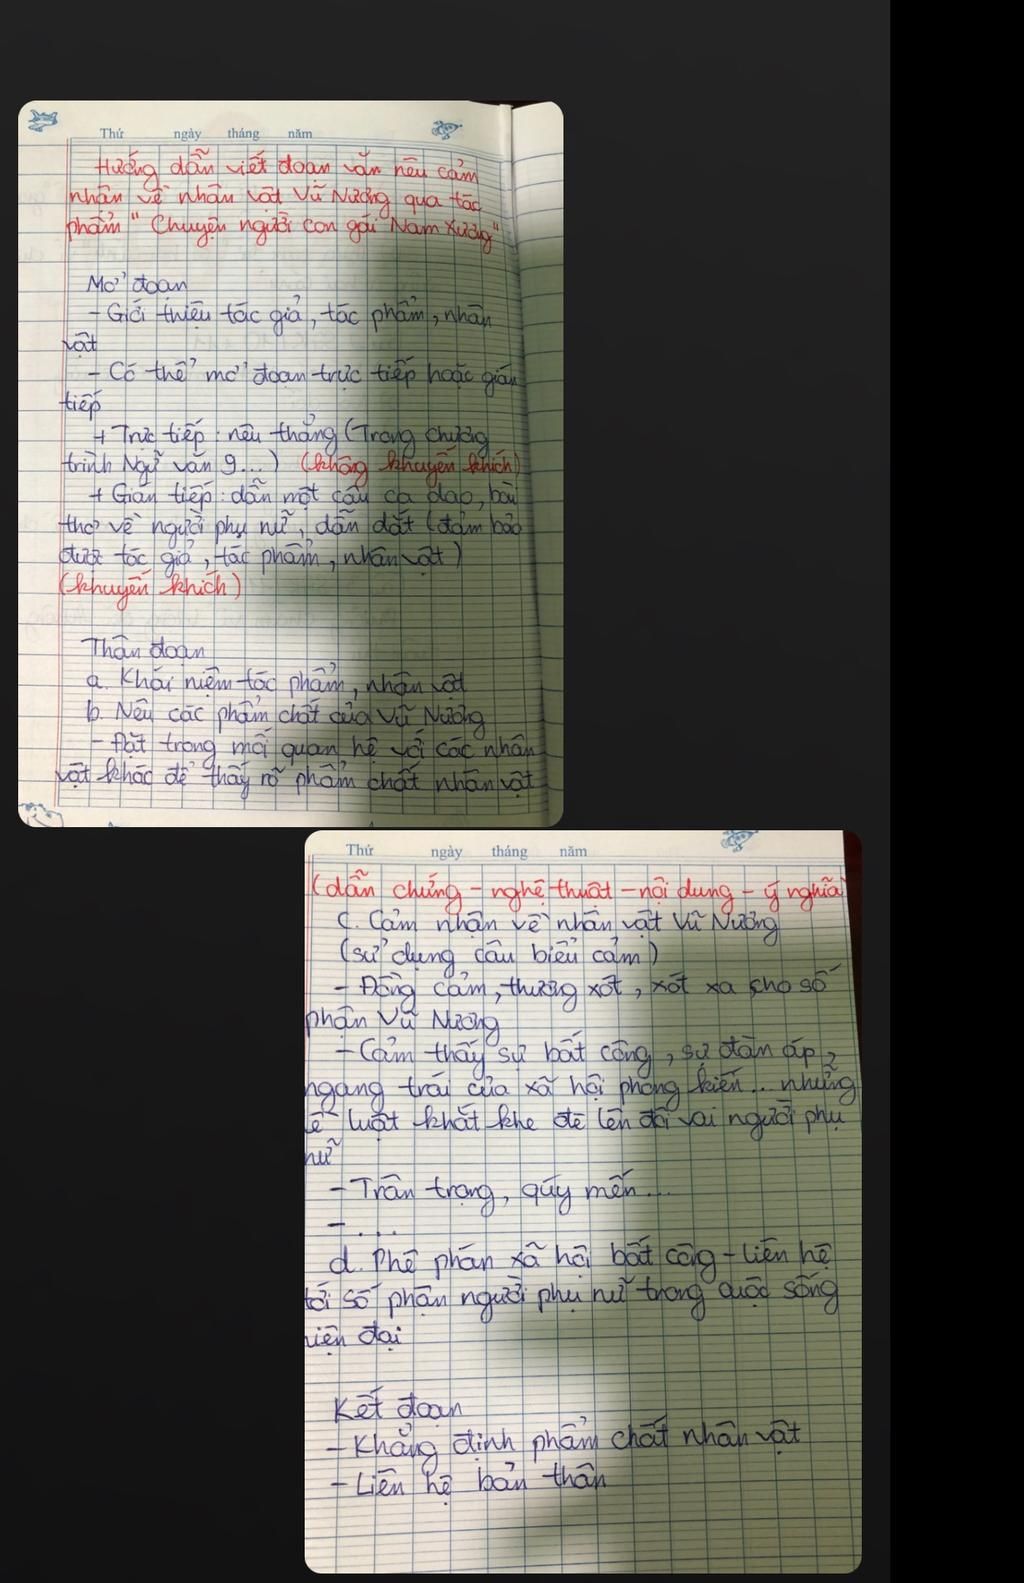 Thứ ngày tháng năm
Hướng dẫn viết đoạn văn nêu cảm
nhận về nhân vật Vũ Nương qua tác
phẩm "Chuyện người con gái Nam Xương"
Mở đoạn
- Giới thiệu tác giả, tác phẩm, nhân
vật
- Có thể mở đoạn trực tiếp hoặc gián
tiếp
+ Trực tiếp: nêu thẳng (Trong chương
trình Ngữ văn 9...) (không khuyến khích)
+ Gián tiếp: dẫn một câu ca dao, bài
thơ về người phụ nữ, dẫn dắt (đảm bảo
được tác giả, tác phẩm, nhân vật)
(khuyến khích)
Thân đoạn
a. Khái niệm tác phẩm, nhân vật
b. Nêu các phẩm chất của Vũ Nương
- Đặt trong mối quan hệ với các nhân
vật khác để thấy rõ phẩm chất nhân vật
Thứ ngày tháng năm
(dẫn chứng - nghệ thuật - nội dung - ý nghĩa
c. Cảm nhận về nhân vật Vũ Nương
(sử dụng câu biểu cảm)
- Đồng cảm, thương xót, xót xa cho số
phận Vũ Nương
- Cảm thấy sự bất công, sự đàn áp,
ngang trái của xã hội phong kiến... những
lễ luật khắt khe đè lên đôi vai người phụ
nữ
- Trân trọng, qúy mến...
- ....
d. Phê phán xã hội bất công - Liên hệ
tới số phận người phụ nữ trong cuộc sống
hiện đại
Kết đoạn
- Khẳng định phẩm chất nhân vật
- Liên hệ bản thân